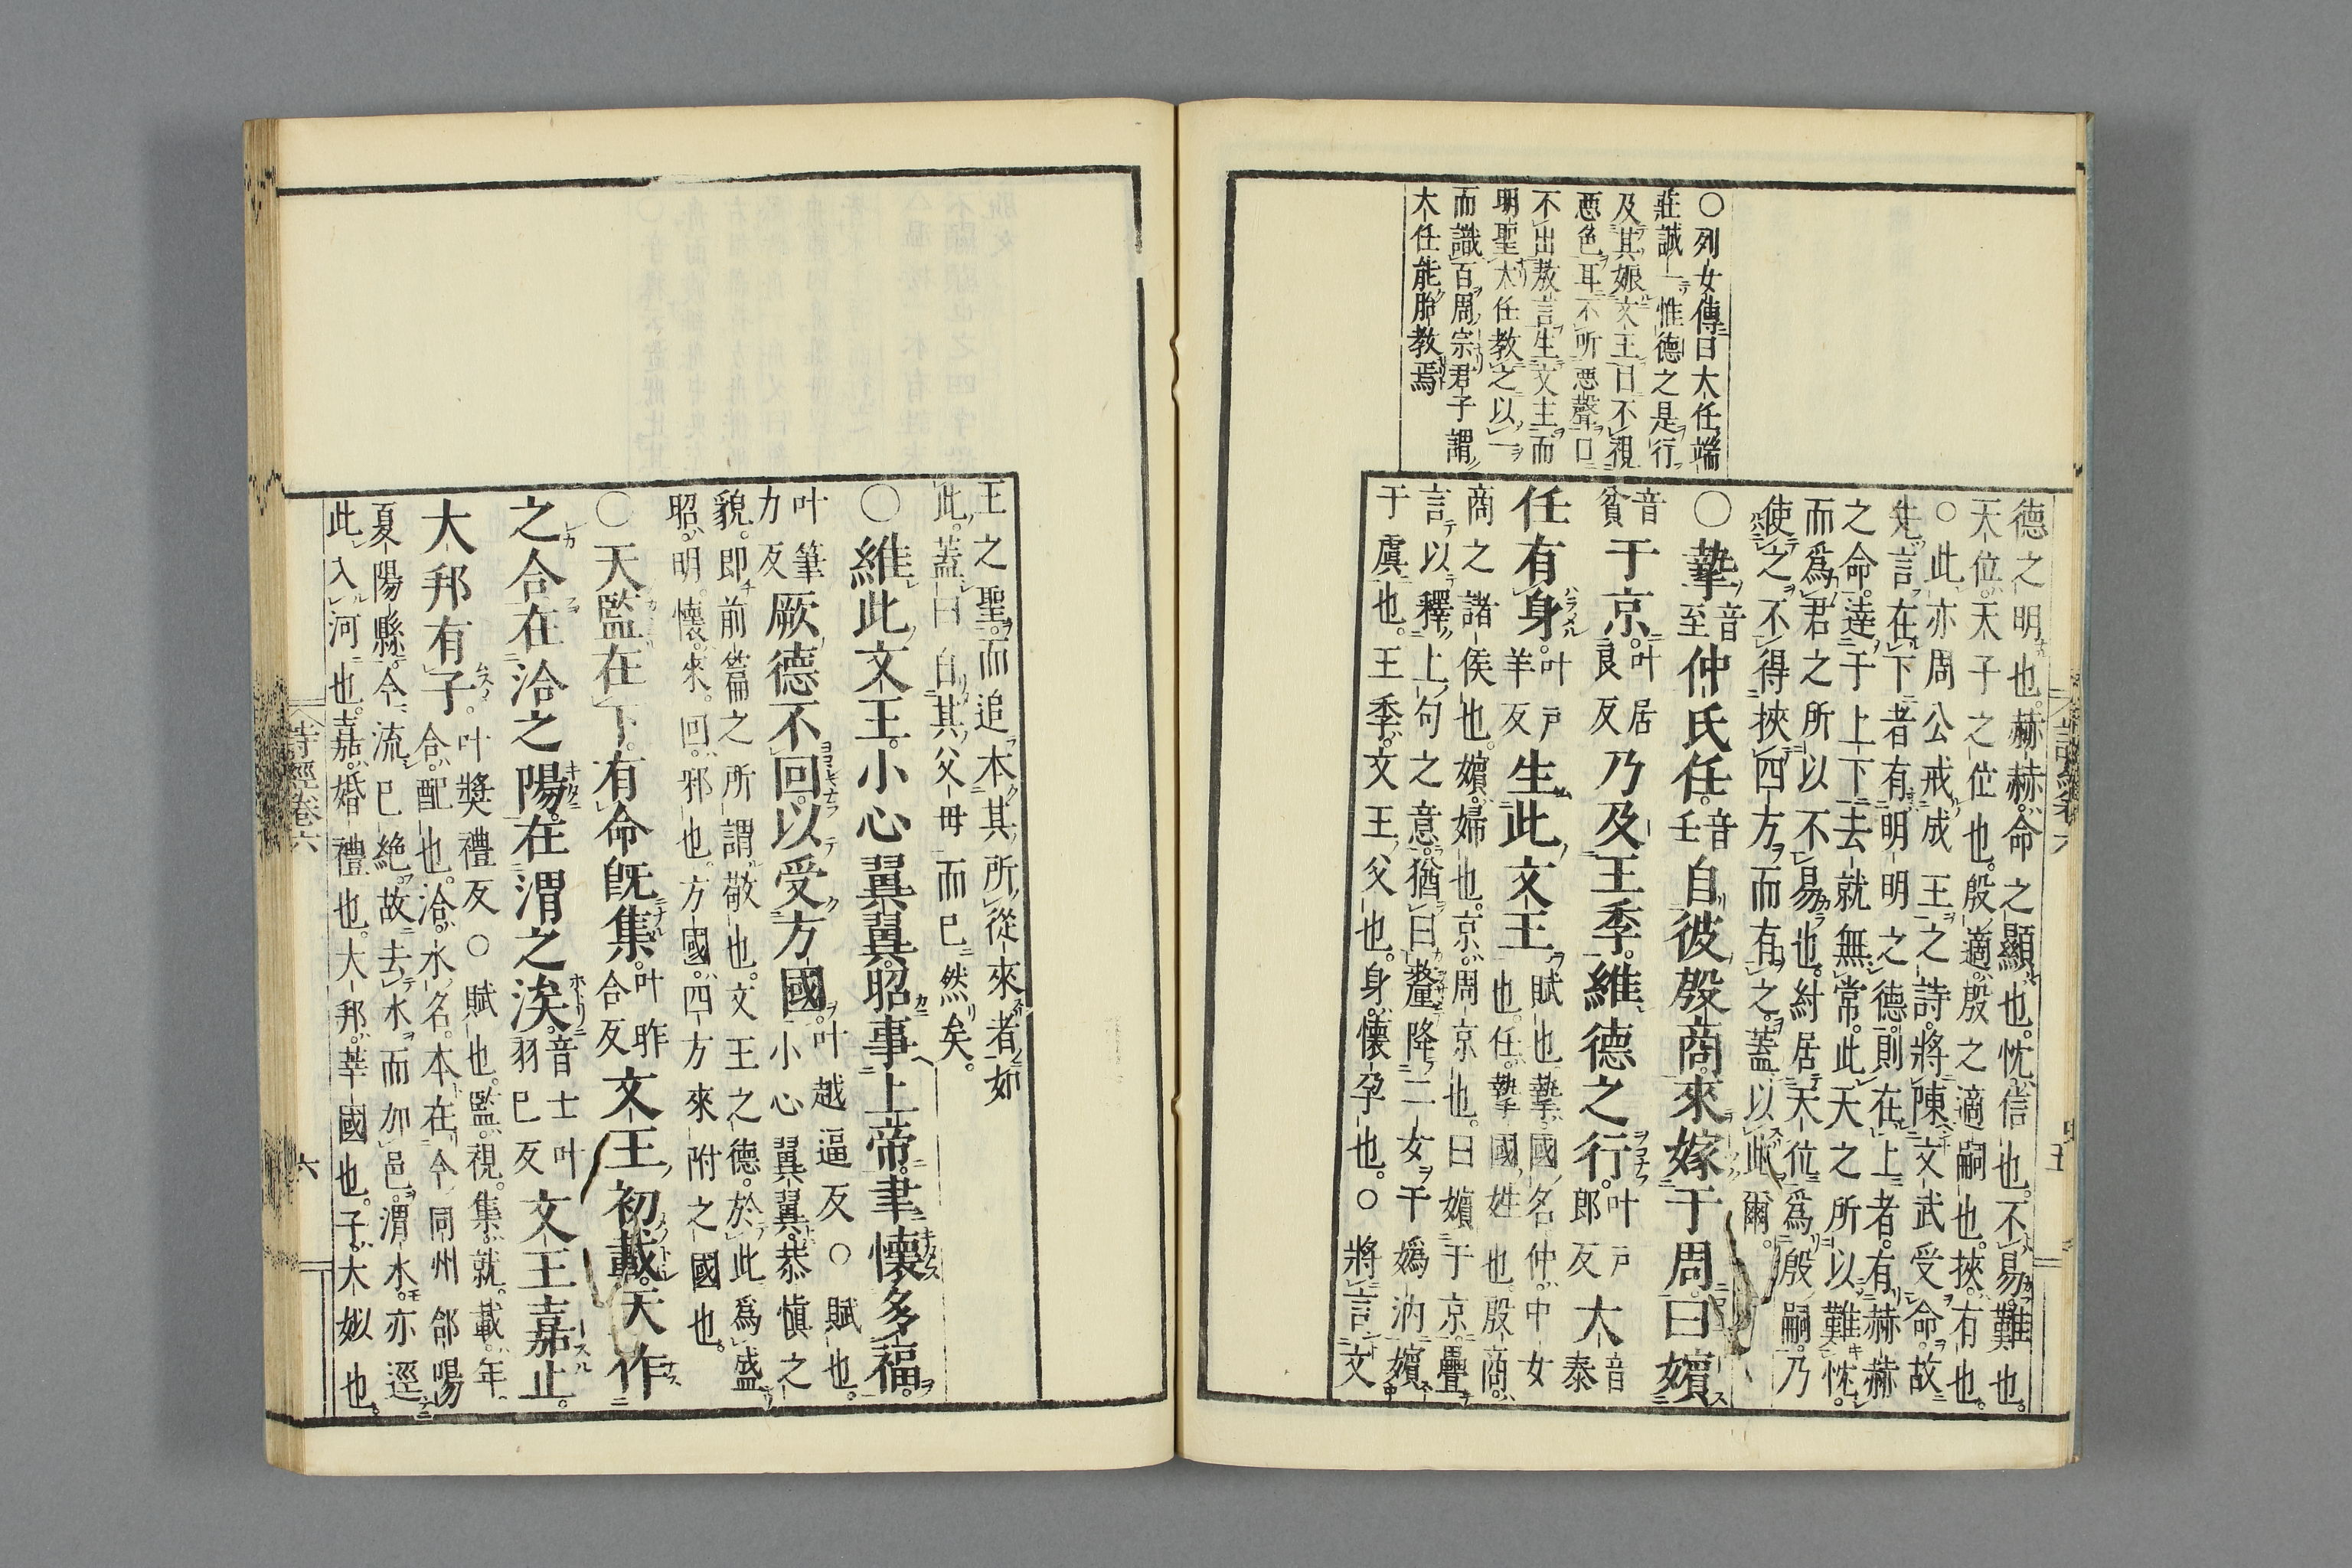 ○列女傳曰大任端
莊誠一惟德之是行
及其娠文王目不視
惡色耳不所惡聲口
不出敖言生文王而
明聖大任教之以一
而識百周宗君子謂
大任能胎教焉
德之明也赫赫命之顯也忱信也不易難也
天位天子之位也殷適殷之適嗣也挾有也
○此亦周公戒成王之詩將陳文武受命故
先言在下者有明明之德則在上者有赫赫
之命達于上下去就無常此天之所以難忱
而爲君之所以不易也紂居天位爲殷嗣乃
使之不得挾四方而有之蓋以此爾
○摯音至仲氏任音壬自彼殷商來嫁于周曰嬪
音貧于京叶居良反乃及王季維德之行叶戶郎反大音泰
任有身叶戶羊反生此文王賦也摯國名仲中女也任摯國姓也殷商
商之諸侯也嬪婦也京周京也曰嬪于京疊
言以釋上句之意猶曰釐降二女于嬀汭嬪
于虞也王季文王父也身懷孕也○將言文
王之聖而追本其所從來者如
此蓋曰自其父母而已然矣
○維此文王小心翼翼昭事上帝聿懷多福
叶筆力反厥德不回以受方國叶越逼反○賦也小心翼翼恭愼之
貌即前篇之所謂敬也文王之德於此爲盛
昭明懷來回邪也方國四方來附之國也
○天監在下有命旣集叶昨合反文王初載天作
之合在洽之陽在渭之涘音士叶羽已反文王嘉止
大邦有子叶獎禮反○賦也監視集就載年
合配也洽水名本在今同州郃陽
夏陽縣今流已絕故去水而加邑渭水亦逕
此入河也嘉婚禮也大邦莘國也子大姒也
詩經卷六
六